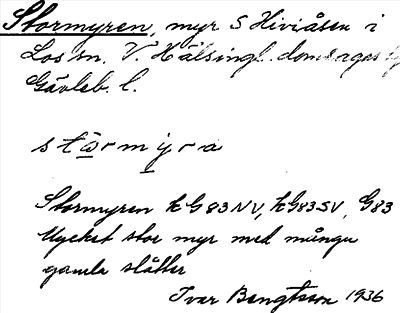 Stormyren, myr S Hiviåsen i
Los sn. V. Hälsingl. domsagas
Gävleb. l.
stωrmyra
Stormyren kG83NV, kG83SV, G83
Mycket stor myr med många
gamla slåtter
Ivar Bengtsson 1936